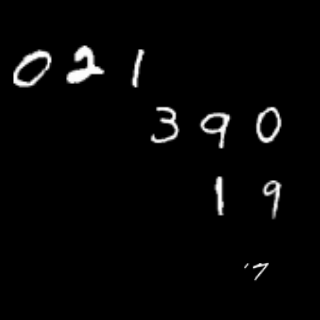 021
390
19
7